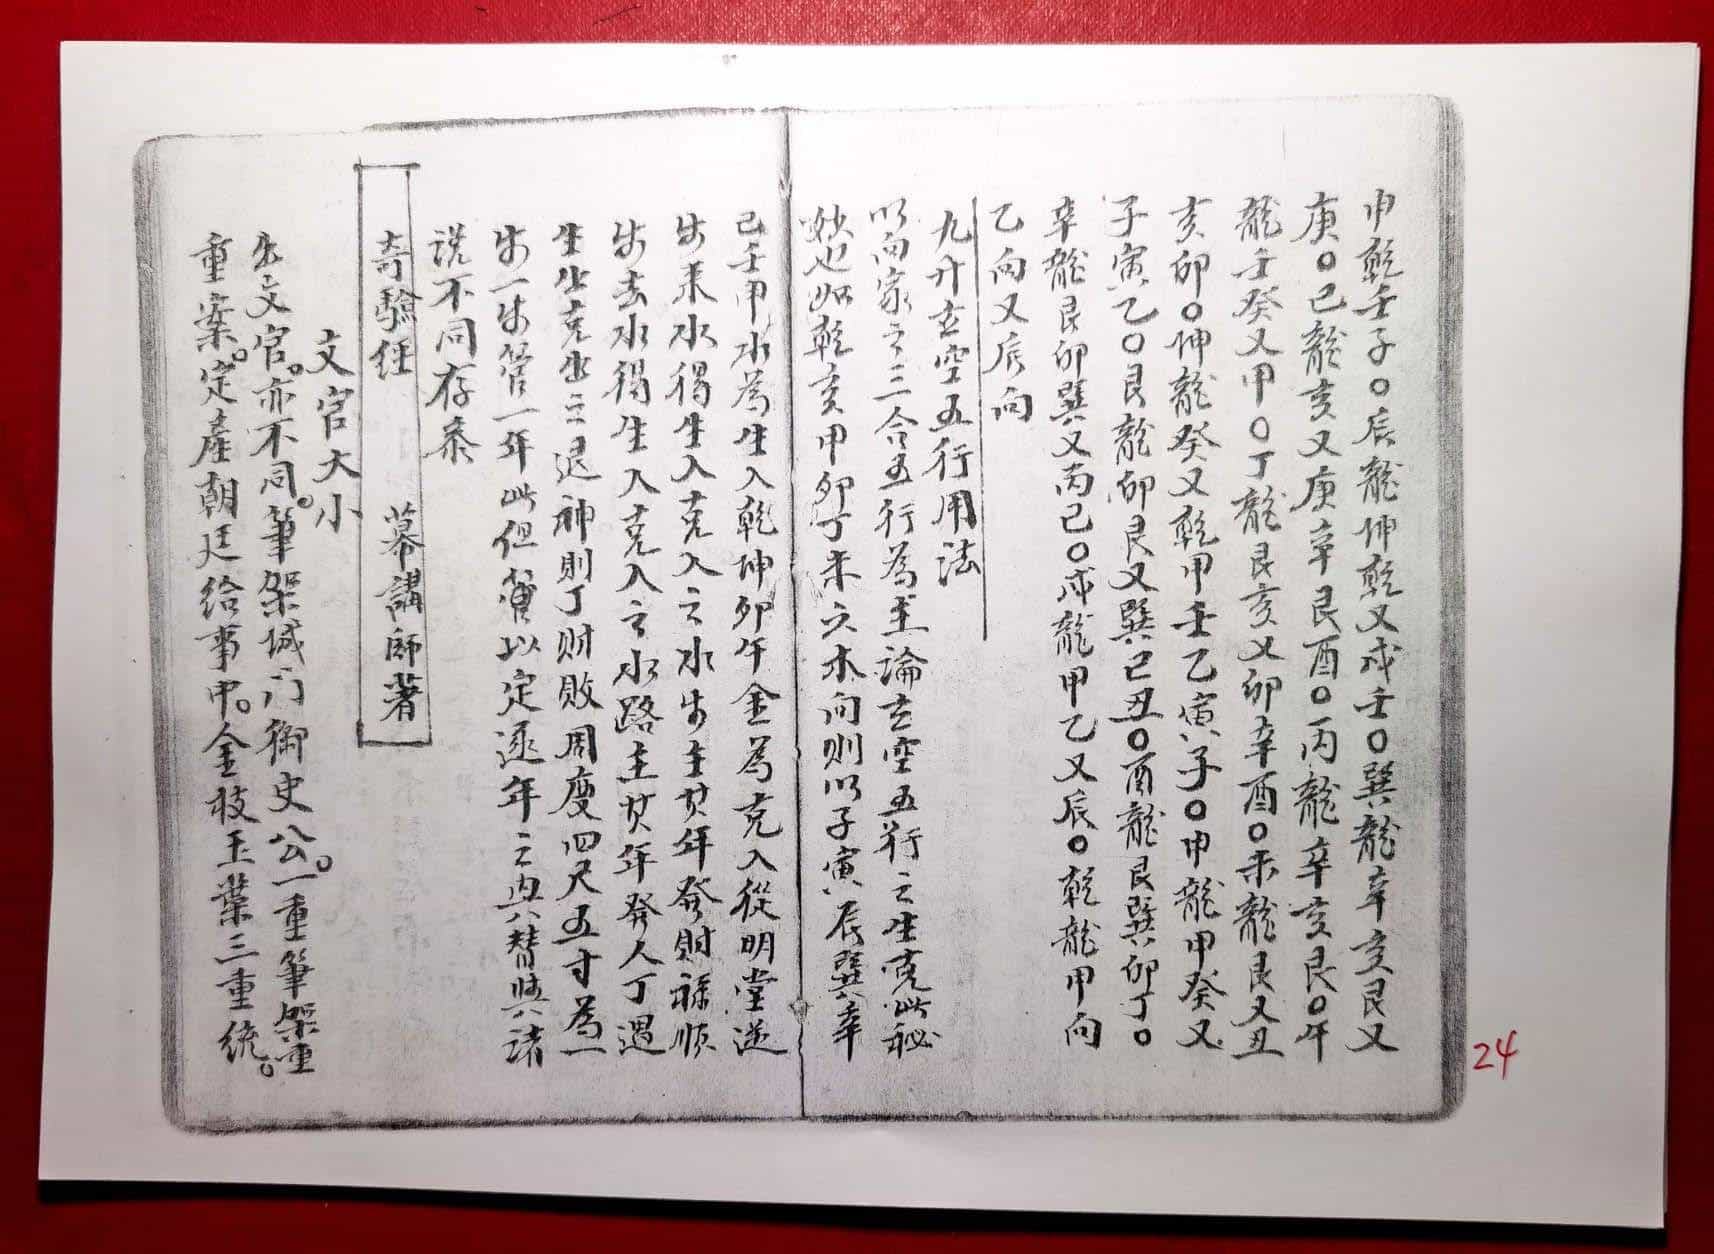 申乾壬子○辰龍坤乾又戌壬○巽龍辛亥艮又
庚○巳龍亥又庚辛艮酉○丙龍辛亥艮○午
龍壬癸又甲○丁龍艮亥又卯辛酉○未龍艮又丑
亥卯○坤龍癸又乾甲壬乙寅子○申龍甲癸又
子寅乙○艮龍卯艮又巽巳丑○酉龍艮巽卯丁○
辛龍艮卯巽又丙巳○戌龍甲乙又辰○乾龍甲向
乙向又辰向
九升玄空五行用法
以向家之三合五行為主論玄空五行之生克此秘
妙也如乾亥甲卯丁未之木向則以子寅辰巽辛
巳壬甲水為生入乾坤卯午金為克入從明堂逆
步来水得生入克入之水步主其年發財祿順
步去水得生入克入之水路主其年發人丁遇
生出克出之退神則丁财敗周度四尺五寸為一
步一步管一年此但
以定逐年之
替與诸
说不同存条
奇驗经 幕講師著
文官大小
出文官。亦不同。筆架城门御史公。一重筆架重
重案。定產朝廷给事中。金枝玉葉三重统。
24